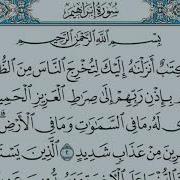 سُورَةُ إِبْرَاهِيمَ
بِسْمِ اللَّهِ الرَّحْمَٰنِ الرَّحِيمِ
كِتَٰبٌ أَنزَلْنَٰهُ إِلَيْكَ لِتُخْرِجَ النَّاسَ مِنَ
بِإِذْنِ رَبِّهِمْ إِلَىٰ صِرَٰطِ الْعَزِيزِ
لَهُۥ مَا فِي السَّمَٰوَٰتِ وَمَا فِي الْأَرْضِ
مِنْ عَذَابٍ شَدِيدٍ ٢ الَّذِينَ